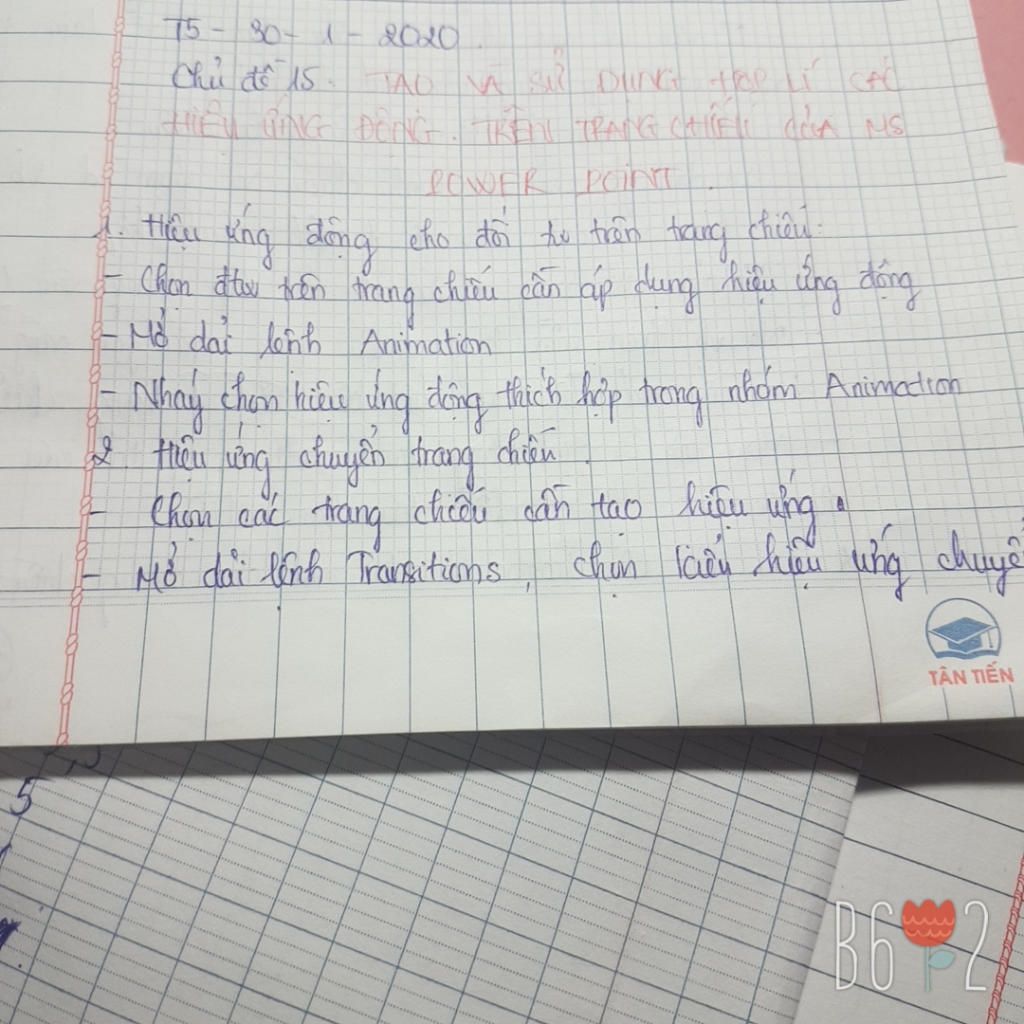 T5 - 30 - 1 - 2020.
Chủ đề 15. TẠO VÀ SỬ DỤNG HỢP LÍ CÁC
HIỆU ỨNG ĐỘNG. TRÊN TRANG CHIẾU CỦA MS
POWER POINT.
1. Hiệu ứng động cho đối tv trên trang chiếu.
- Chọn đtu trên trang chiếu cần áp dụng hiệu ứng động
- Mở dải lệnh Animation
- Nháy chọn hiệu ứng động thích hợp trong nhóm Animation
2. Hiệu ứng chuyển trang chiếu.
- Chọn các trang chiếu cần tạo hiệu ứng.
- Mở dải lệnh Transitions, chọn kiểu hiệu ứng chuyể
TÂN TIẾN
5
B6 2